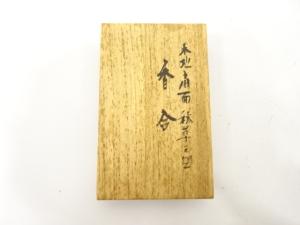 木地扇面秋草之図
香合